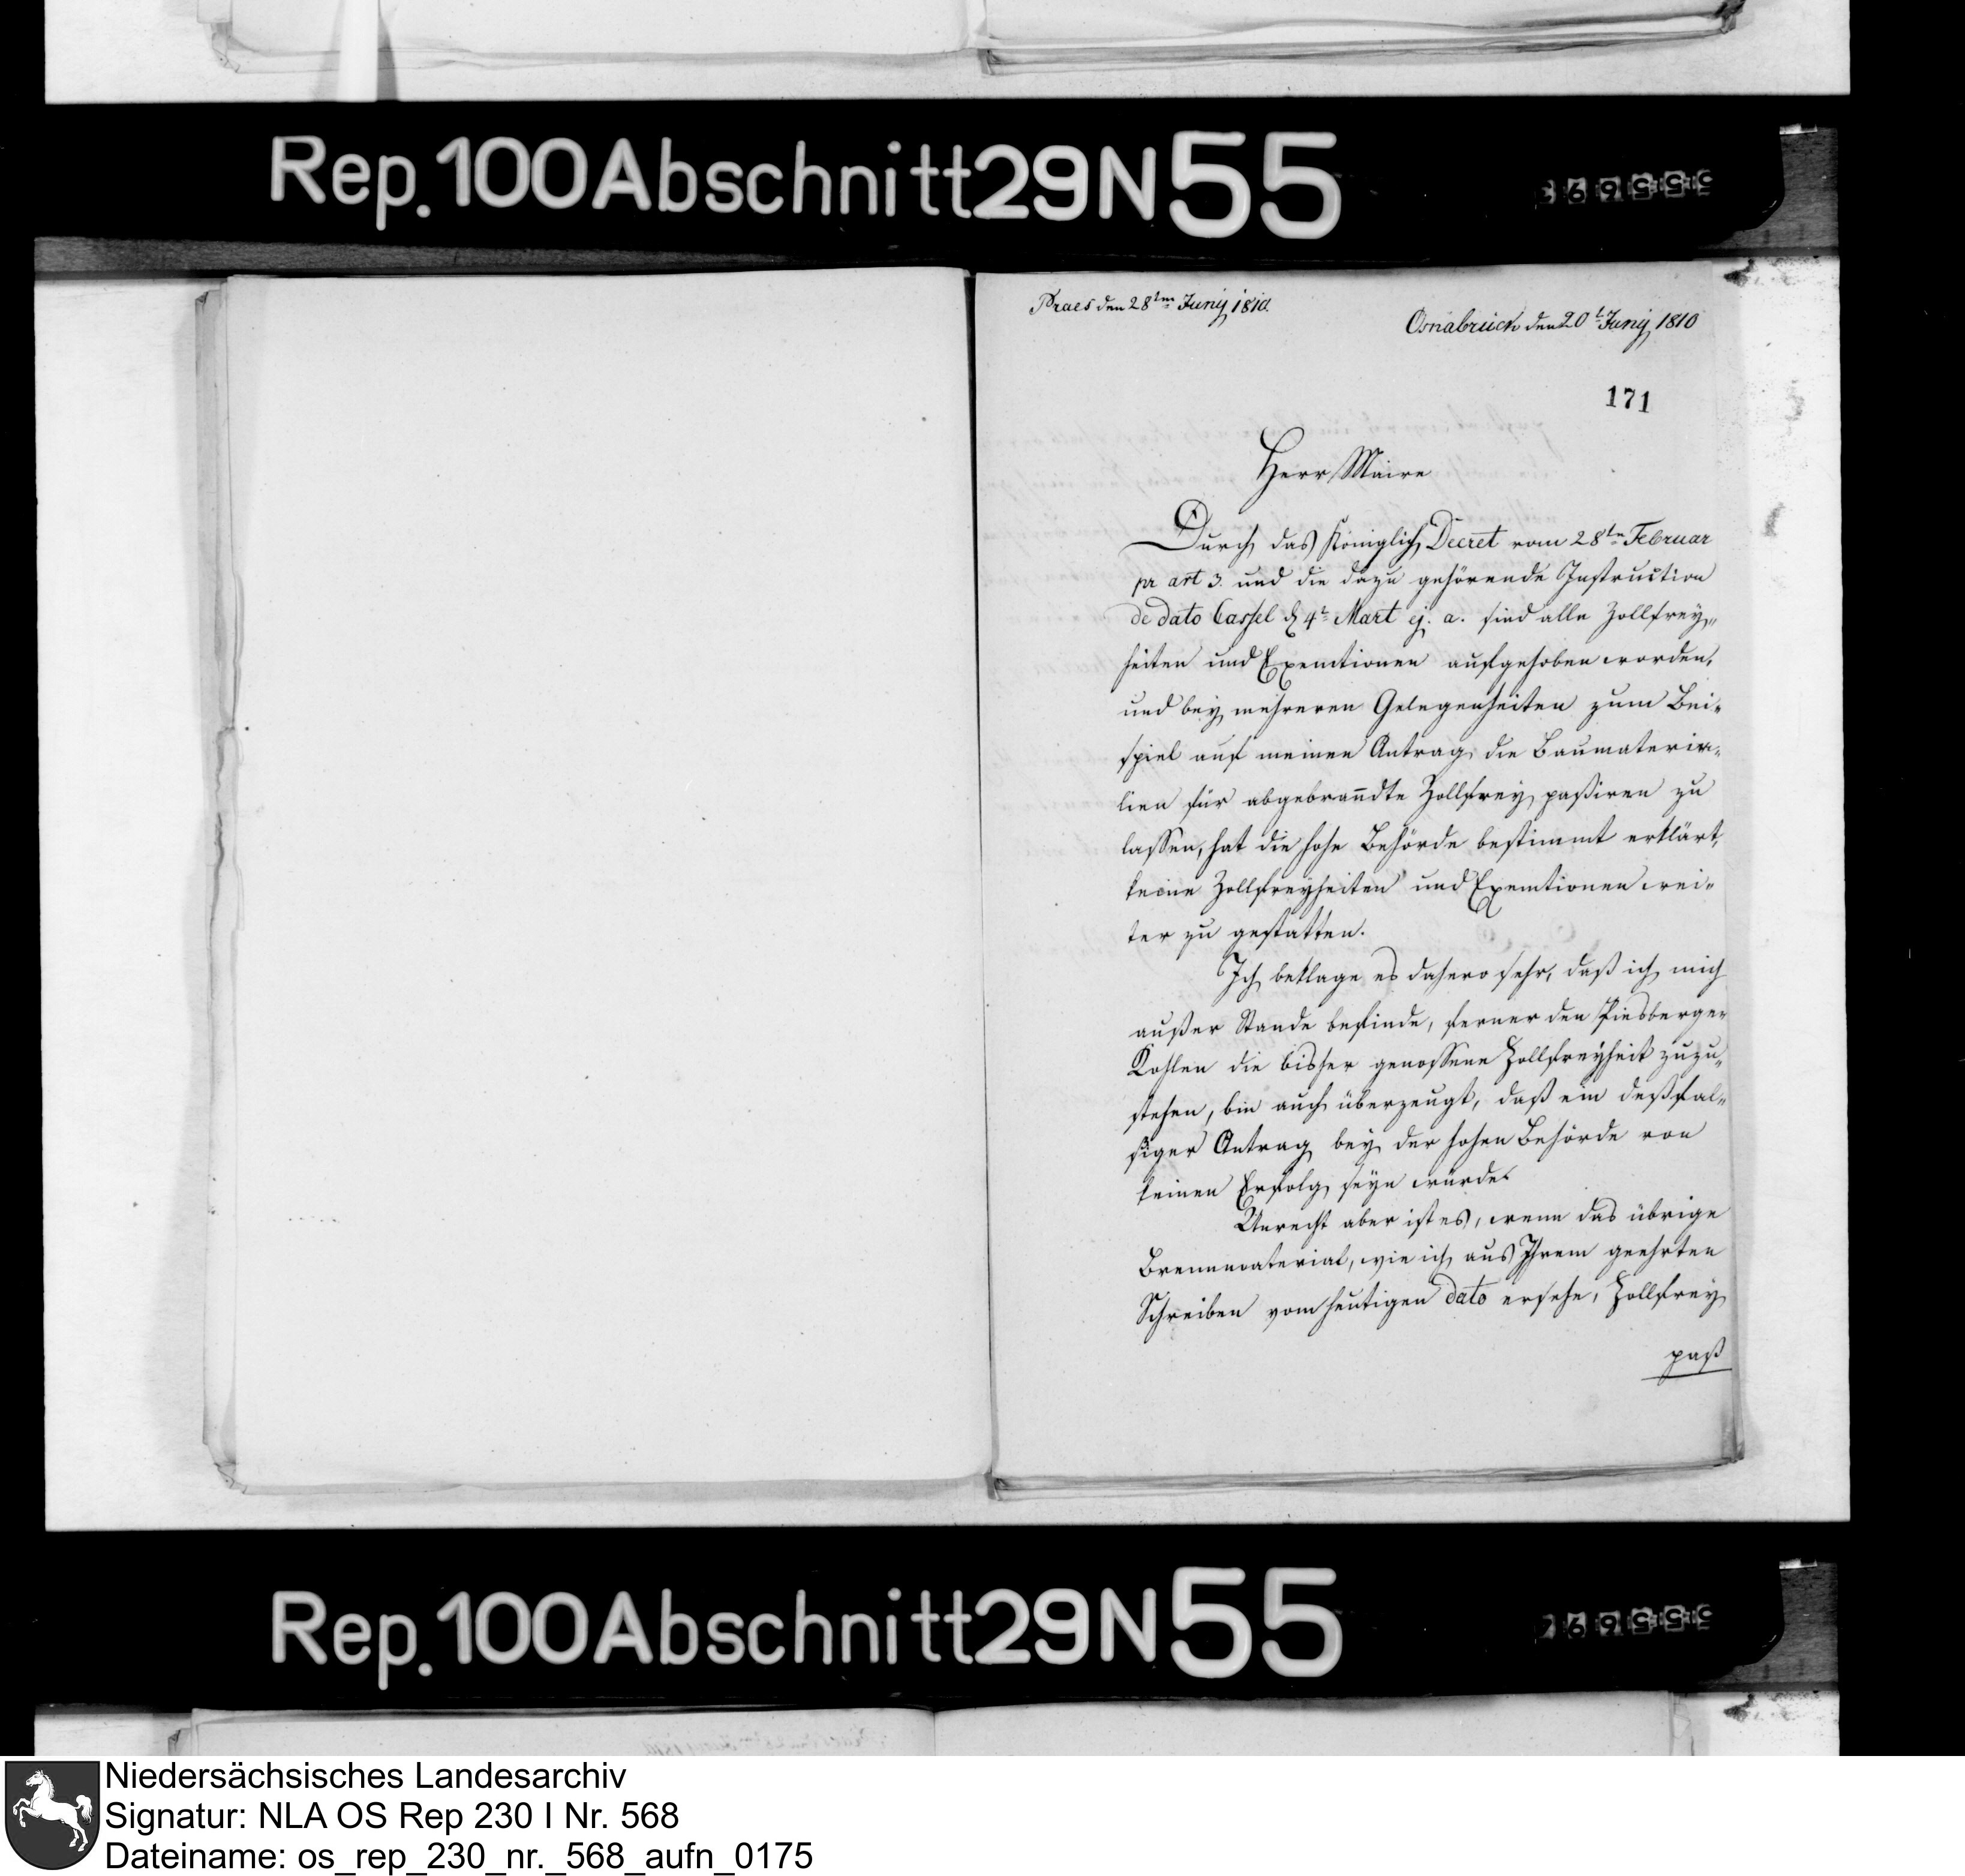 Rep. 100 Abschnitt 29 N 55
Praes den 28ten Junij 1810.
Osnabrück den 20t Junij 1810
171
Herr Maire
Durch das Königlich Decret vom 28ten Februar
pr art 3. und die dazu gehörende Instruction
de dato Cassel d 4t Mart ej. a. sind alle Zollfrey„
heiten und Exemtionen aufgehoben worden,
und bey mehreren Gelegenheiten zum Bei„
spiel auf meinen Antrag die Baumateria„
lien für abgebran̄dte Zollfrey paßiren zu
lassen, hat die hohe Behörde bestimmt erklärt,
keine Zollfreyheiten und Exemtionen wei„
ter zu gestatten.
Ich beklage es dahero sehr, daß ich mich
außer Stande befinde, ferner den Piesberger
Kohlen die bisher genossene Zollfreyheit zuzu„
stehen, bin auch überzeugt, daß ein deßfal„
siger Antrag bey der hohen Behörde von
keinen Erfolg seyn würde.
Unrecht aber ist es, wenn das übrige
Brennmaterial, wie ich aus Ihrem geehrten
Schreiben vom heutigen dato ersehe, Zollfrey
paß
Rep. 100 Abschnitt 29 N 55
Niedersächsisches Landesarchiv
Signatur: NLA OS Rep 230 I Nr. 568
Dateiname: os_rep_230_nr._568_aufn_0175